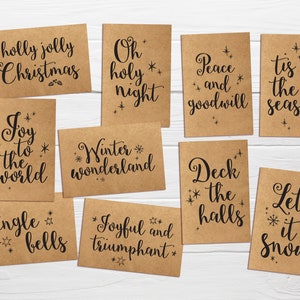 holly jolly
Christmas
Oh
holy
night
Peace
and
goodwill
tis
the
seas
Joy
to the
world
Winter
wonderland
Deck
the
halls
Let
it
snow
ingle
bells
Joyful and
triumphant